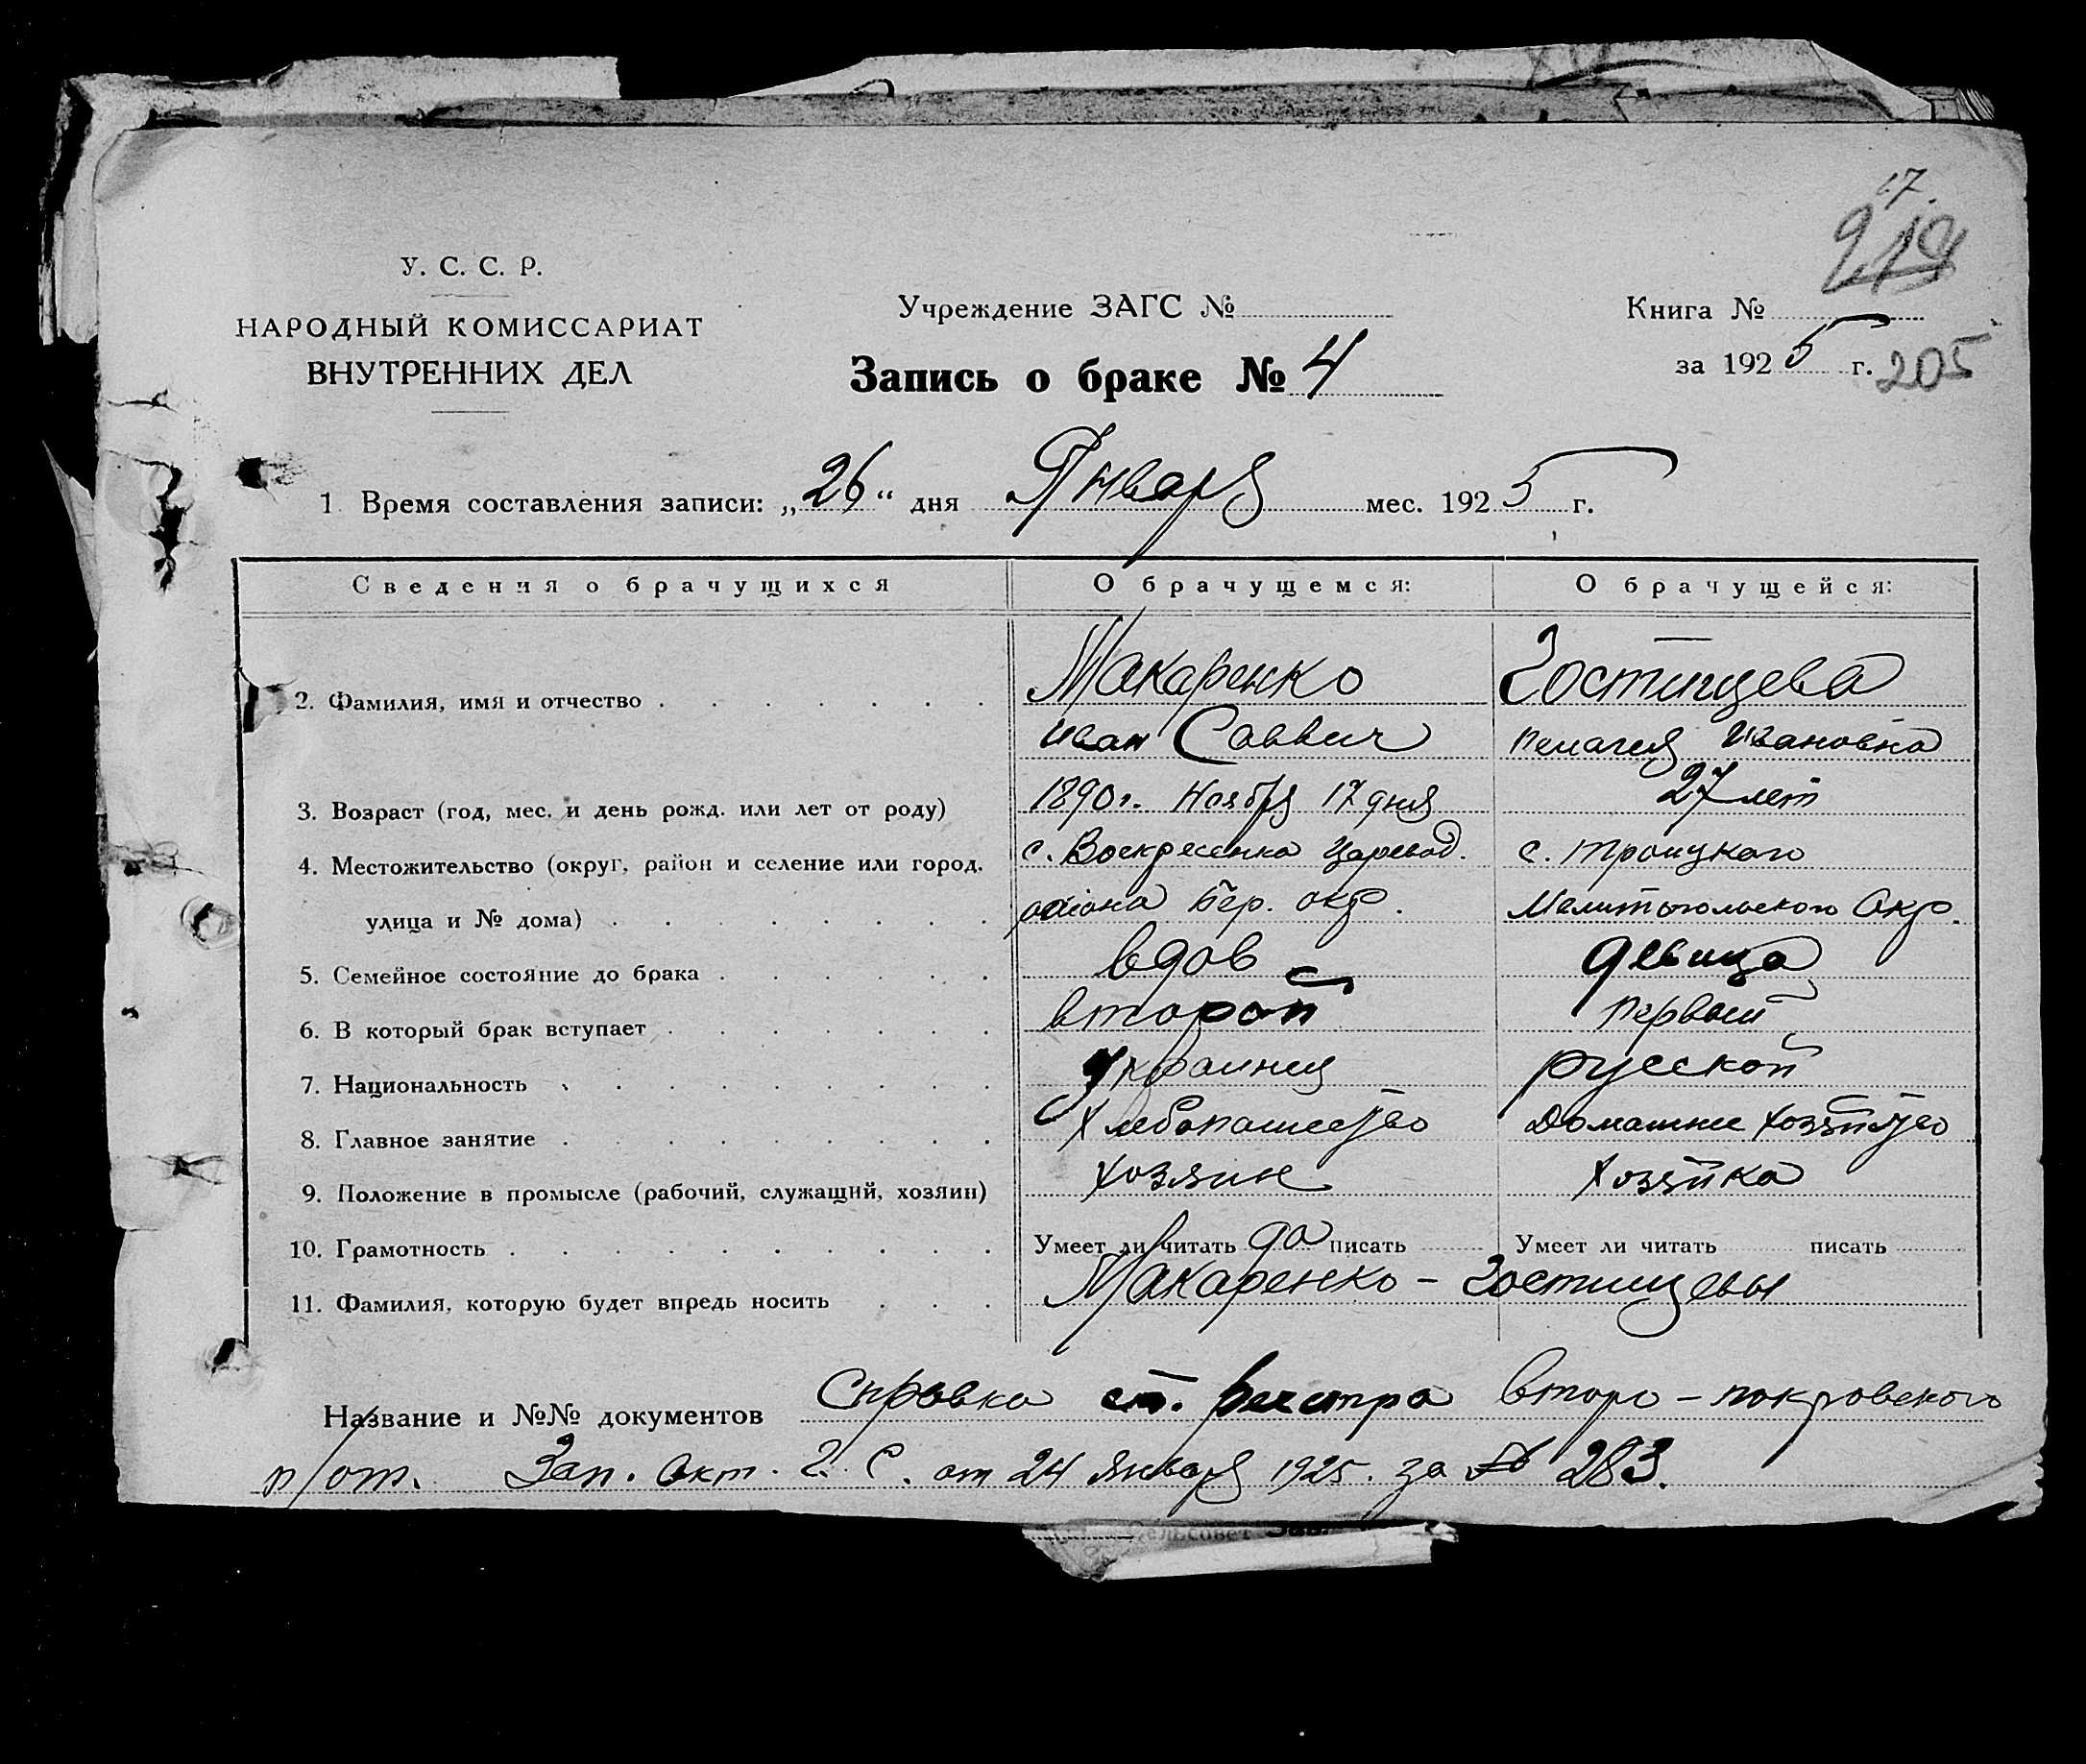 17.
205
У. С. С. Р.
НАРОДНЫЙ КОМИССАРИАТ
ВНУТРЕННИХ ДЕЛ
Учреждение ЗАГС №
Запись о браке № 4
Книга №
за 1925 г.
1 Время составления записи: „26“ дня Января мес. 1925 г.
Сведения о брачущихся О брачущемся: О брачущейся:
2. Фамилия, имя и отчество Макаренко Гостищева
Иван Саввич Пелагея Ивановна
3. Возраст (год, мес. и день рожд. или лет от роду) 1890 г. Ноября 17 дня 27 лет
4. Местожительство (округ, район и селение или город, с. Воскресенка Царевод. с. Троицкого
улица и № дома) района Бер. окр. Мелитопольского Окр.
5. Семейное состояние до брака вдов девица
6. В который брак вступает второй первый
7. Национальность Украинец русской
8. Главное занятие Хлебопашество Домашнее хозяйство
9. Положение в промысле (рабочий, служащий, хозяин) Хозяин Хозяйка
10. Грамотность Умеет ли читать да писать Умеет ли читать писать
11. Фамилия, которую будет впредь носить Макаренко – Гостищевы
Название и №№ документов Справка ст. Реестра второ – покровского
п/от. Зап. Акт. Г. С. от 24 Января 1925. за № 283.
Сельсовет